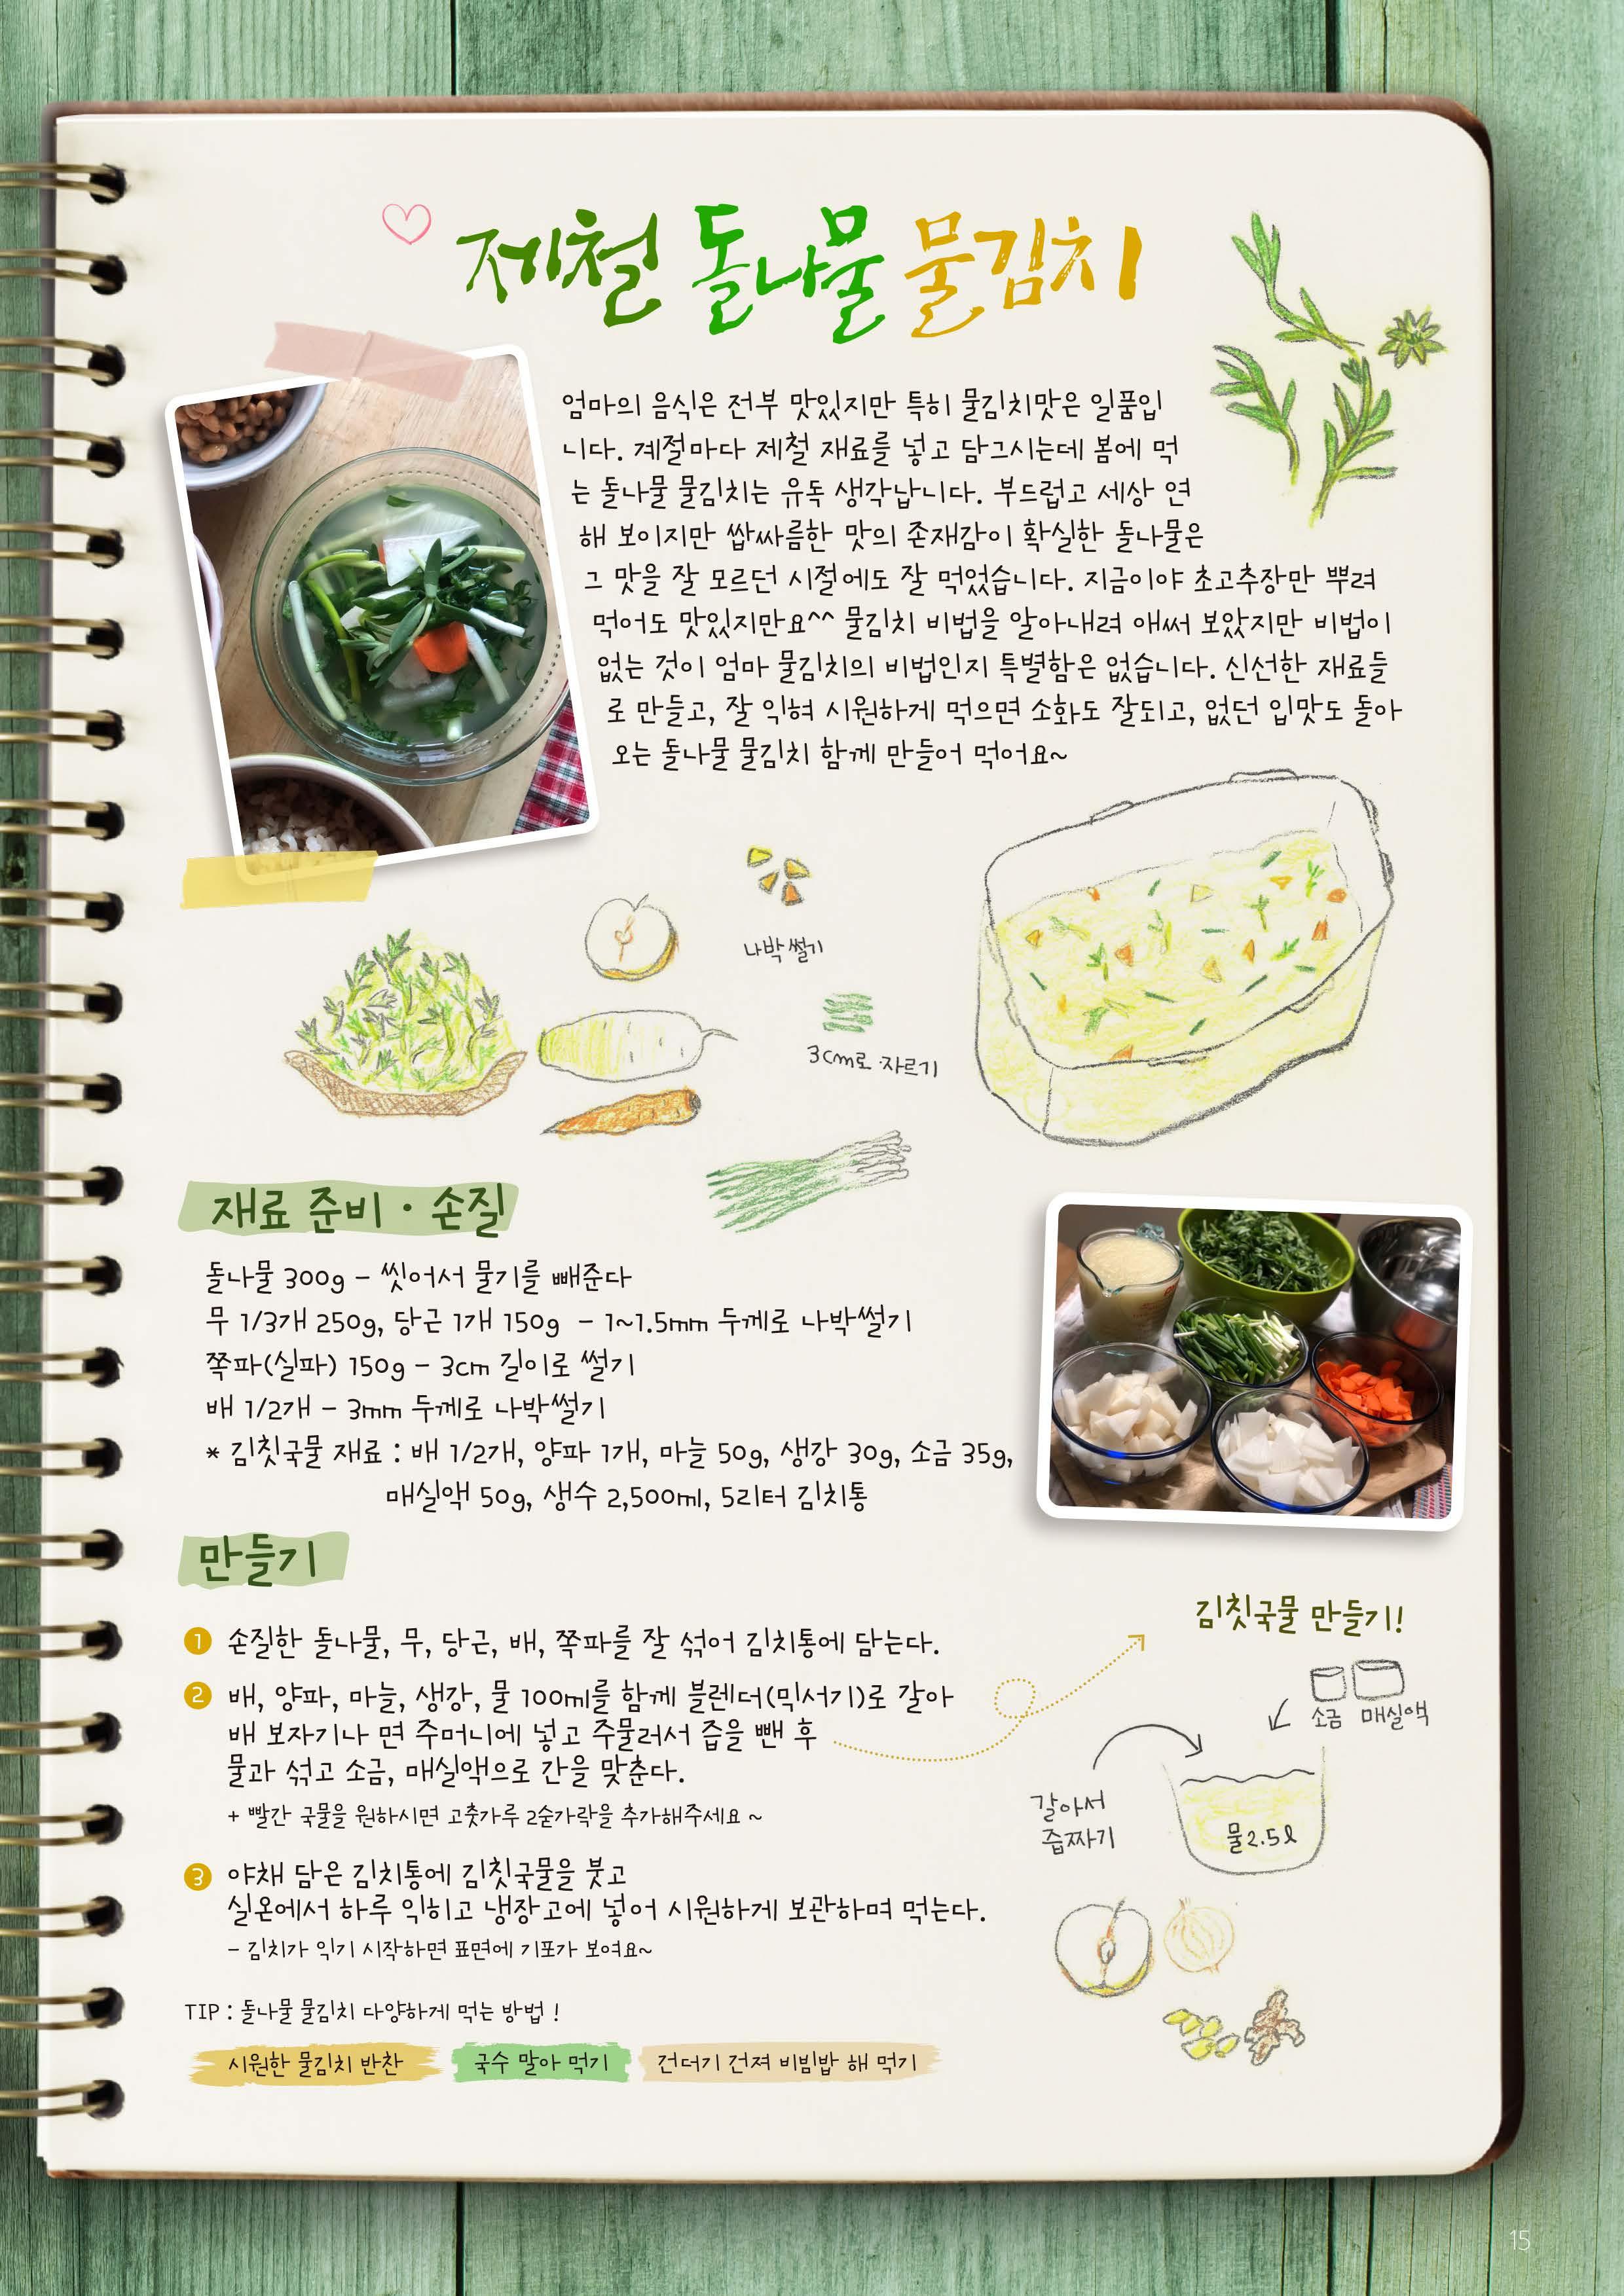 제철 돌나물 물김치
엄마의 음식은 전부 맛있지만 특히 물김치맛은 일품입
니다. 계절마다 제철 재료를 넣고 담그시는데 봄에 먹
는 돌나물 물김치는 유독 생각납니다. 부드럽고 세상 연
해 보이지만 쌉싸름한 맛의 존재감이 확실한 돌나물은
그 맛을 잘 모르던 시절에도 잘 먹었습니다. 지금이야 초고추장만 뿌려
먹어도 맛있지만요^^ 물김치 비법을 알아내려 애써 보았지만 비법이
없는 것이 엄마 물김치의 비법인지 특별함은 없습니다. 신선한 재료들
로 만들고, 잘 익혀 시원하게 먹으면 소화도 잘되고, 없던 입맛도 돌아
오는 돌나물 물김치 함께 만들어 먹어요~
나박썰기
3cm로 자르기
재료 준비 · 손질
돌나물 300g - 씻어서 물기를 빼준다
무 1/3개 250g, 당근 1개 150g - 1~1.5mm 두께로 나박썰기
쪽파(실파) 150g - 3cm 길이로 썰기
배 1/2개 - 3mm 두께로 나박썰기
* 김칫국물 재료 : 배 1/2개, 양파 1개, 마늘 50g, 생강 30g, 소금 35g,
매실액 50g, 생수 2,500ml, 5리터 김치통
만들기
1 손질한 돌나물, 무, 당근, 배, 쪽파를 잘 섞어 김치통에 담는다.
2 배, 양파, 마늘, 생강, 물 100ml를 함께 블렌더(믹서기)로 갈아
배 보자기나 면 주머니에 넣고 주물러서 즙을 뺀 후
물과 섞고 소금, 매실액으로 간을 맞춘다.
+ 빨간 국물을 원하시면 고춧가루 2숟가락을 추가해주세요 ~
3 야채 담은 김치통에 김칫국물을 붓고
실온에서 하루 익히고 냉장고에 넣어 시원하게 보관하며 먹는다.
- 김치가 익기 시작하면 표면에 기포가 보여요~
김칫국물 만들기!
소금 매실액
갈아서
즙짜기
물2.5ℓ
TIP : 돌나물 물김치 다양하게 먹는 방법 !
시원한 물김치 반찬
국수 말아 먹기
건더기 건져 비빔밥 해 먹기
15